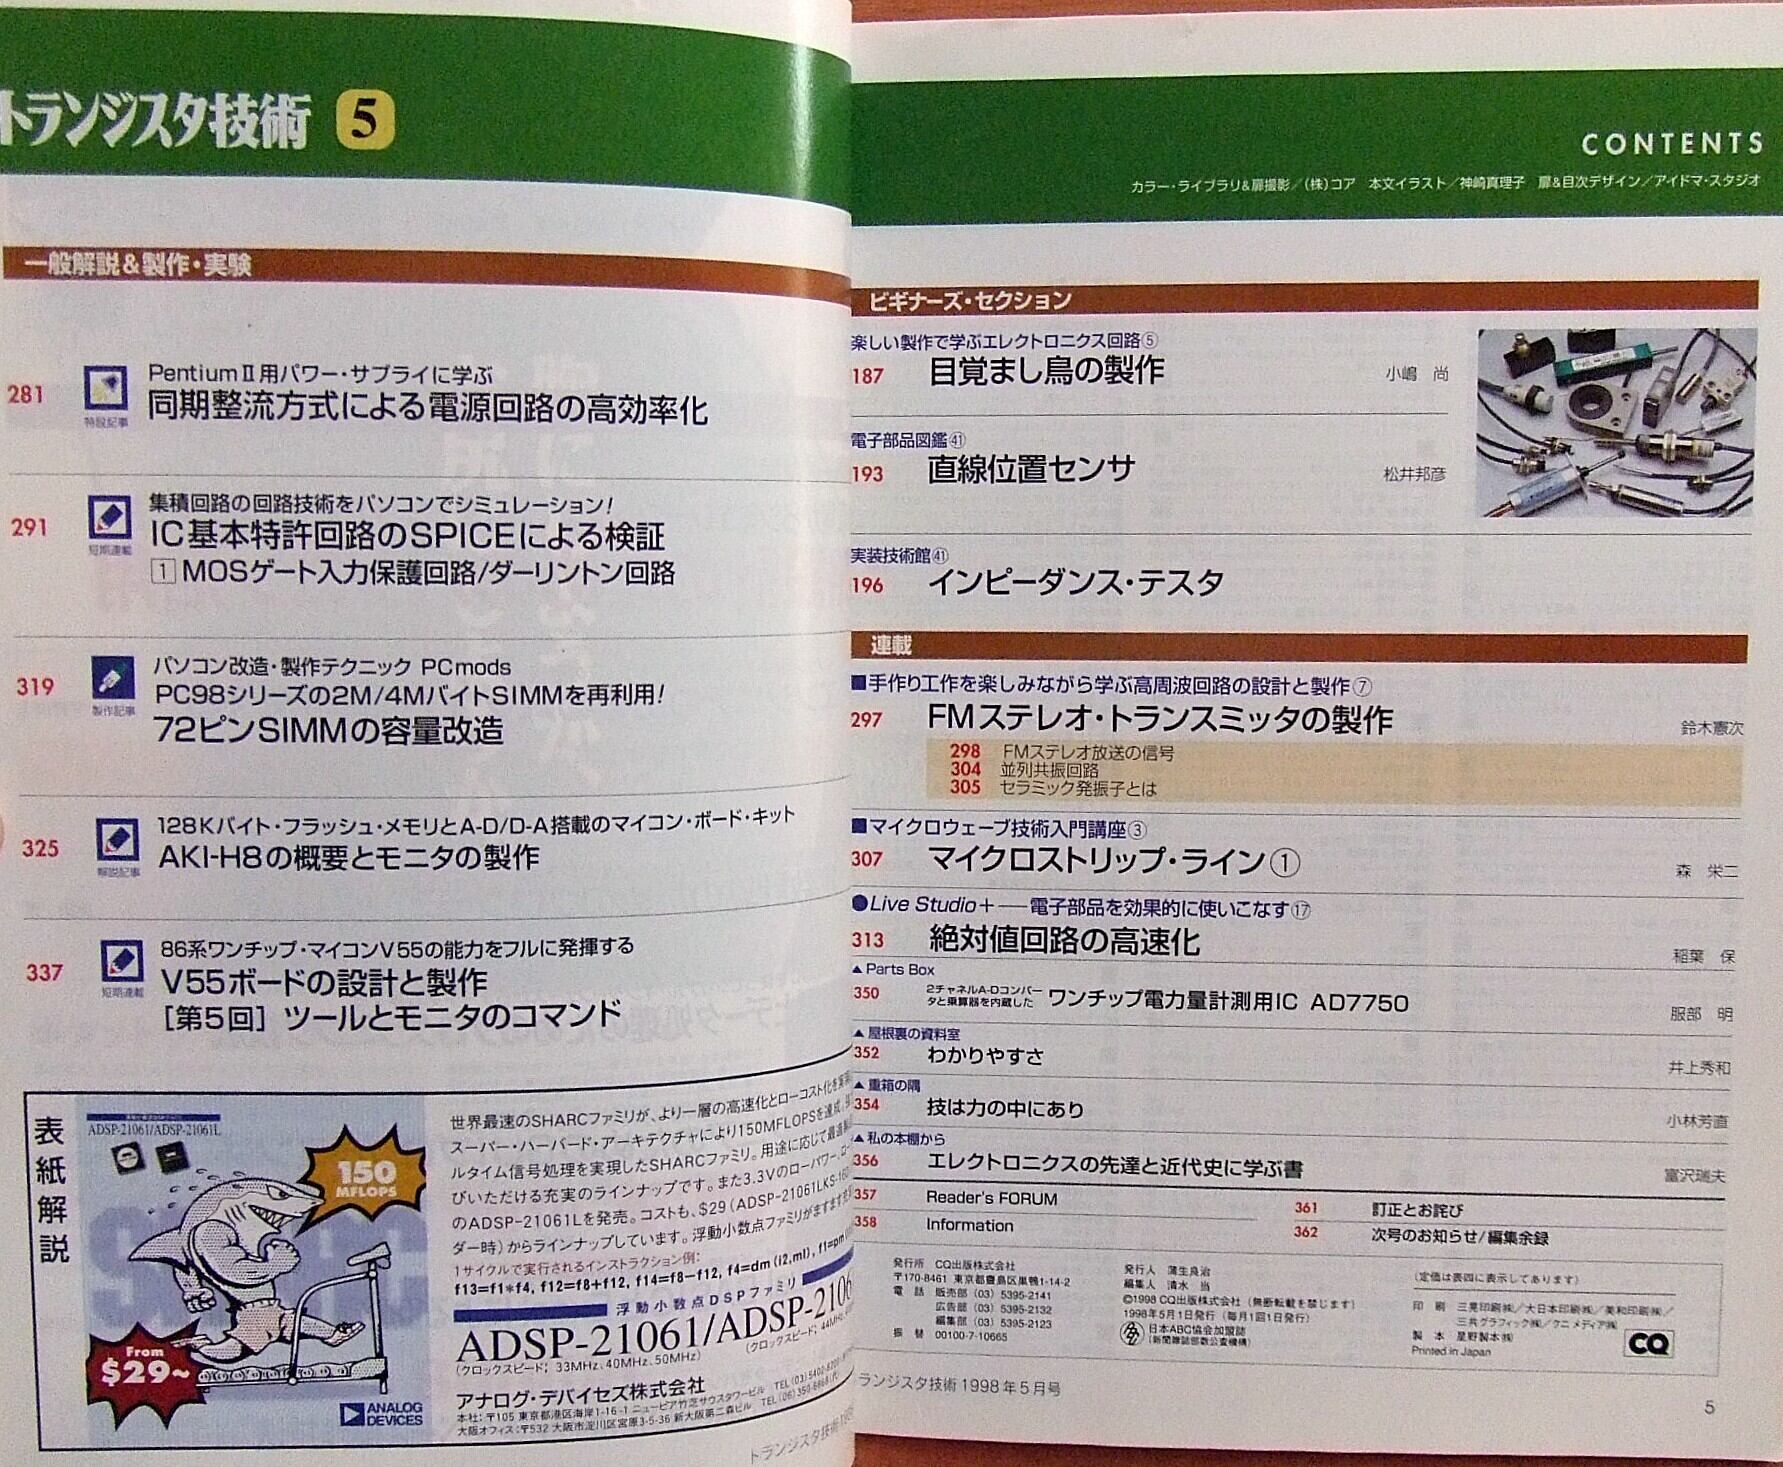 トランジスタ技術 5
一般解説&製作・実験
281
特設記事
PentiumⅡ用パワー・サプライに学ぶ
同期整流方式による電源回路の高効率化
291
短期連載
集積回路の回路技術をパソコンでシミュレーション!
IC基本特許回路のSPICEによる検証
1 MOSゲート入力保護回路/ダーリントン回路
319
製作記事
パソコン改造・製作テクニック PCmods
PC98シリーズの2M/4MバイトSIMMを再利用!
72ピンSIMMの容量改造
325
解説記事
128Kバイト・フラッシュ・メモリとA-D/D-A搭載のマイコン・ボード・キット
AKI-H8の概要とモニタの製作
337
短期連載
86系ワンチップ・マイコンV55の能力をフルに発揮する
V55ボードの設計と製作
[第5回] ツールとモニタのコマンド
表紙解説
ADSP-21061/ADSP-21061L
150
MFLOPS
From
$29~
ANALOG
DEVICES
世界最速のSHARCファミリが、より一層の高速化とローコスト化を実現
スーパー・ハーバード・アーキテクチャにより150MFLOPSを達成。
ルタイム信号処理を実現したSHARCファミリ。用途に応じて最適
びいただける充実のラインナップです。また3.3Vのローパワー
のADSP-21061Lを発売。コストも、$29(ADSP-21061LKS-160
ダー時)からラインナップしています。浮動小数点ファミリがますます
1サイクルで実行されるインストラクション例:
f13=f1*f4, f12=f8+f12, f14=f8-f12, f4=dm(i2,ml), f1=pm
浮動小数点DSPファミリ
ADSP-21061/ADSP-2106
(クロックスピード; 33MHz、40MHz、50MHz)
(クロックスピード; 44MHz
アナログ・デバイセズ株式会社
本社:〒105 東京都港区海岸1-16-1 ニューピア竹芝サウスタワービル
大阪オフィス:〒532 大阪市淀川区宮原3-5-36 新大阪第二森ビル
トランジスタ技術
CONTENTS
カラー・ライブラリ&扉撮影/(株)コア 本文イラスト/神崎真理子 扉&目次デザイン/アイドマ・スタジオ
ビギナーズ・セクション
楽しい製作で学ぶエレクトロニクス回路⑤
187 目覚まし鳥の製作 小嶋 尚
電子部品図鑑㊶
193 直線位置センサ 松井邦彦
実装技術館㊶
196 インピーダンス・テスタ
連載
■手作り工作を楽しみながら学ぶ高周波回路の設計と製作⑦
297 FMステレオ・トランスミッタの製作 鈴木憲次
298 FMステレオ放送の信号
304 並列共振回路
305 セラミック発振子とは
■マイクロウェーブ技術入門講座③
307 マイクロストリップ・ライン① 森 栄二
●Live Studio+――電子部品を効果的に使いこなす⑰
313 絶対値回路の高速化 稲葉 保
▲Parts Box
350 2チャネルA-Dコンバータと乗算器を内蔵した ワンチップ電力量計測用IC AD7750 服部 明
▲屋根裏の資料室
352 わかりやすさ 井上秀和
▲重箱の隅
354 技は力の中にあり 小林芳直
▲私の本棚から
356 エレクトロニクスの先達と近代史に学ぶ書 富沢瑞夫
357 Reader's FORUM
358 Information
361 訂正とお詫び
362 次号のお知らせ/編集余録
発行所 CQ出版株式会社
〒170-8461 東京都豊島区巣鴨1-14-2
電話 販売部(03)5395-2141
広告部(03)5395-2132
編集部(03)5395-2123
振替 00100-7-10665
発行人 蒲生良治
編集人 清水 当
©1998 CQ出版株式会社(無断転載を禁じます)
1998年5月1日発行(毎月1回1日発行)
日本ABC協会加盟誌
(新聞雑誌部数公査機構)
(定価は表四に表示してあります)
印刷 三晃印刷㈱/大日本印刷㈱/美和印刷㈱/
三共グラフィック㈱/クニメディア㈱
製本 星野製本㈱
Printed in Japan
CQ
ランジスタ技術 1998年5月号
5